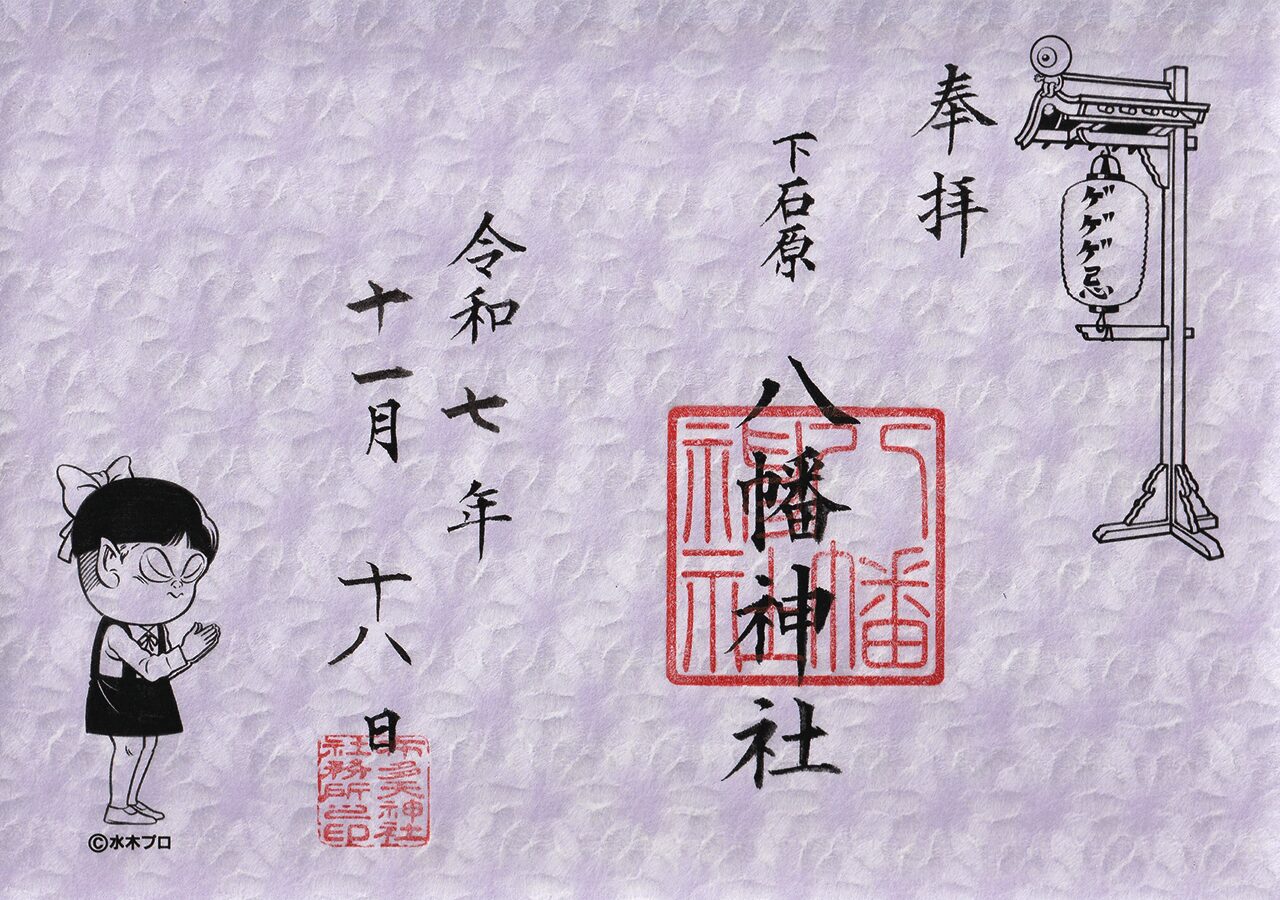 ゲゲゲ忌
奉拝
下石原
八幡神社
八幡神社
令和七年
十一月十八日
布多天神社
社務所之印
©水木プロ